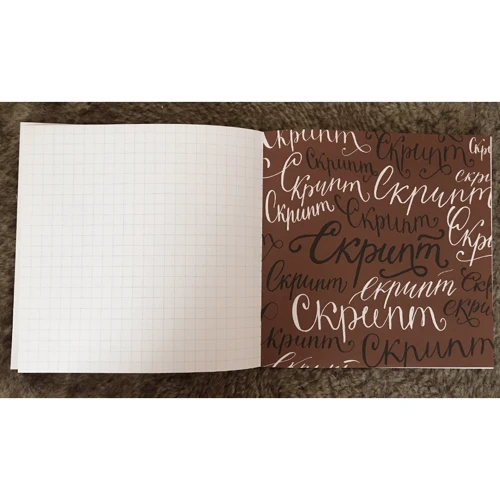 Скрипт Скрипт
Скрипт Скрипт Скрипт
Скрипт Скрипт
Скрипт
Скрипт
Скрипт Скрипт
Скрипт
Скрипт
Скрипт